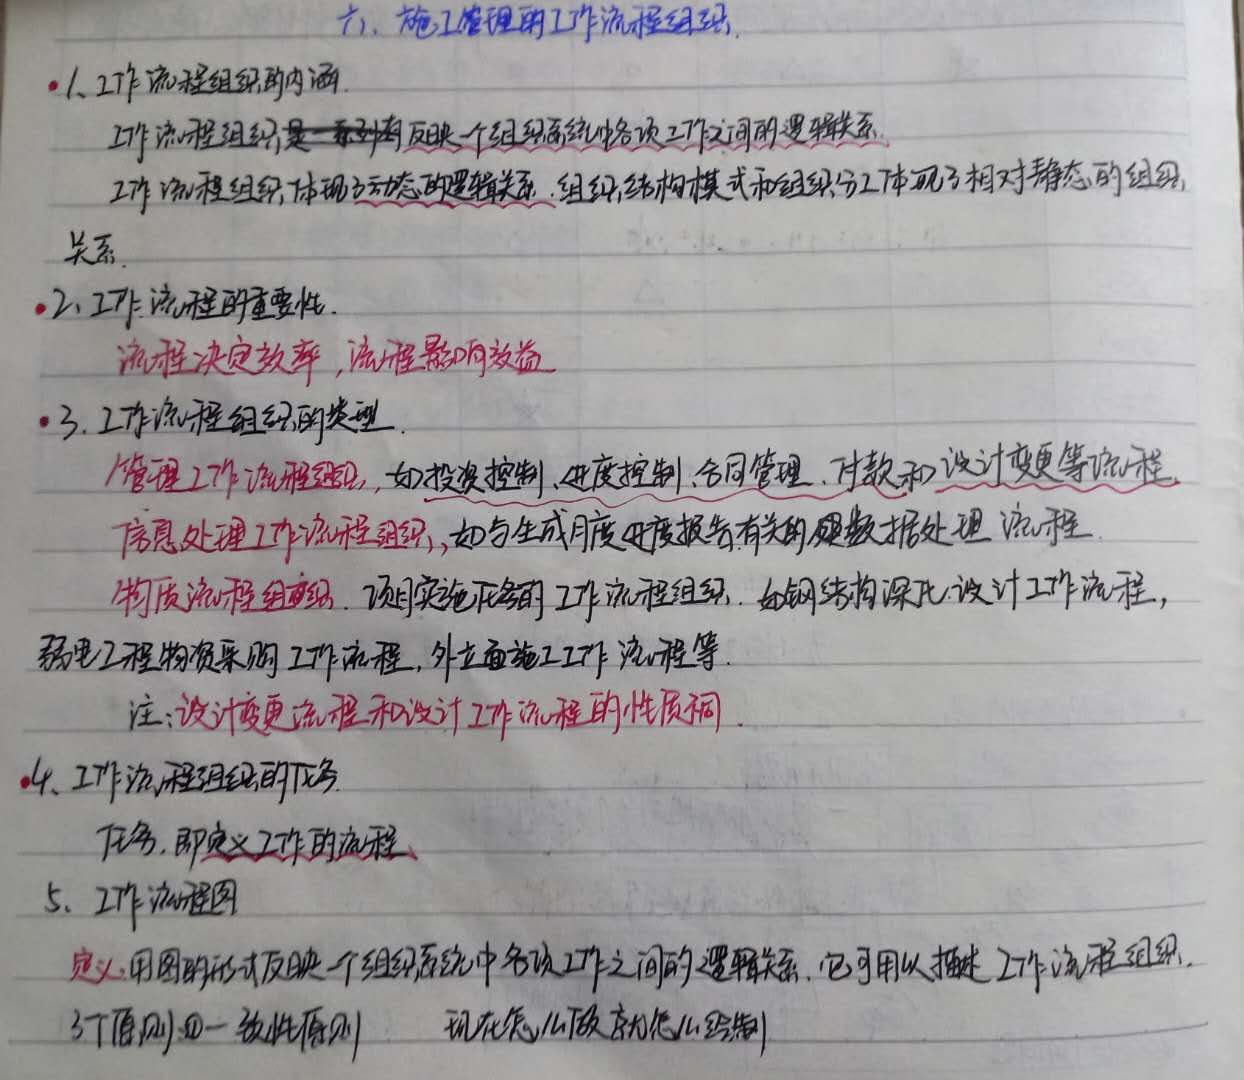 六、施工管理的工作流程组织.
1、工作流程组织的内涵.
工作流程组织是一系列有反映一个组织系统中各项工作之间的逻辑关系.
工作流程组织体现了动态的逻辑关系.组织结构模式和组织分工体现了相对静态的组织
关系.
2、工作流程的重要性.
流程决定效率,流程影响效益
3.工作流程组织的类型.
管理工作流程组织,如投资控制、进度控制、合同管理、付款和设计变更等流程.
信息处理工作流程组织,如与生成月度进度报告有关的数据处理流程.
物质流程组织.项目实施任务的工作流程组织.如钢结构深化设计工作流程,
弱电工程物资采购工作流程,外立面施工工作流程等.
注:设计变更流程和设计工作流程的性质不同.
4、工作流程组织的任务.
任务.即定义工作的流程
5、工作流程图
定义.用图的形式反映一个组织系统中各项工作之间的逻辑关系.它可用以描述工作流程组织.
3个原则①一致性原则 现在怎么做就怎么绘制